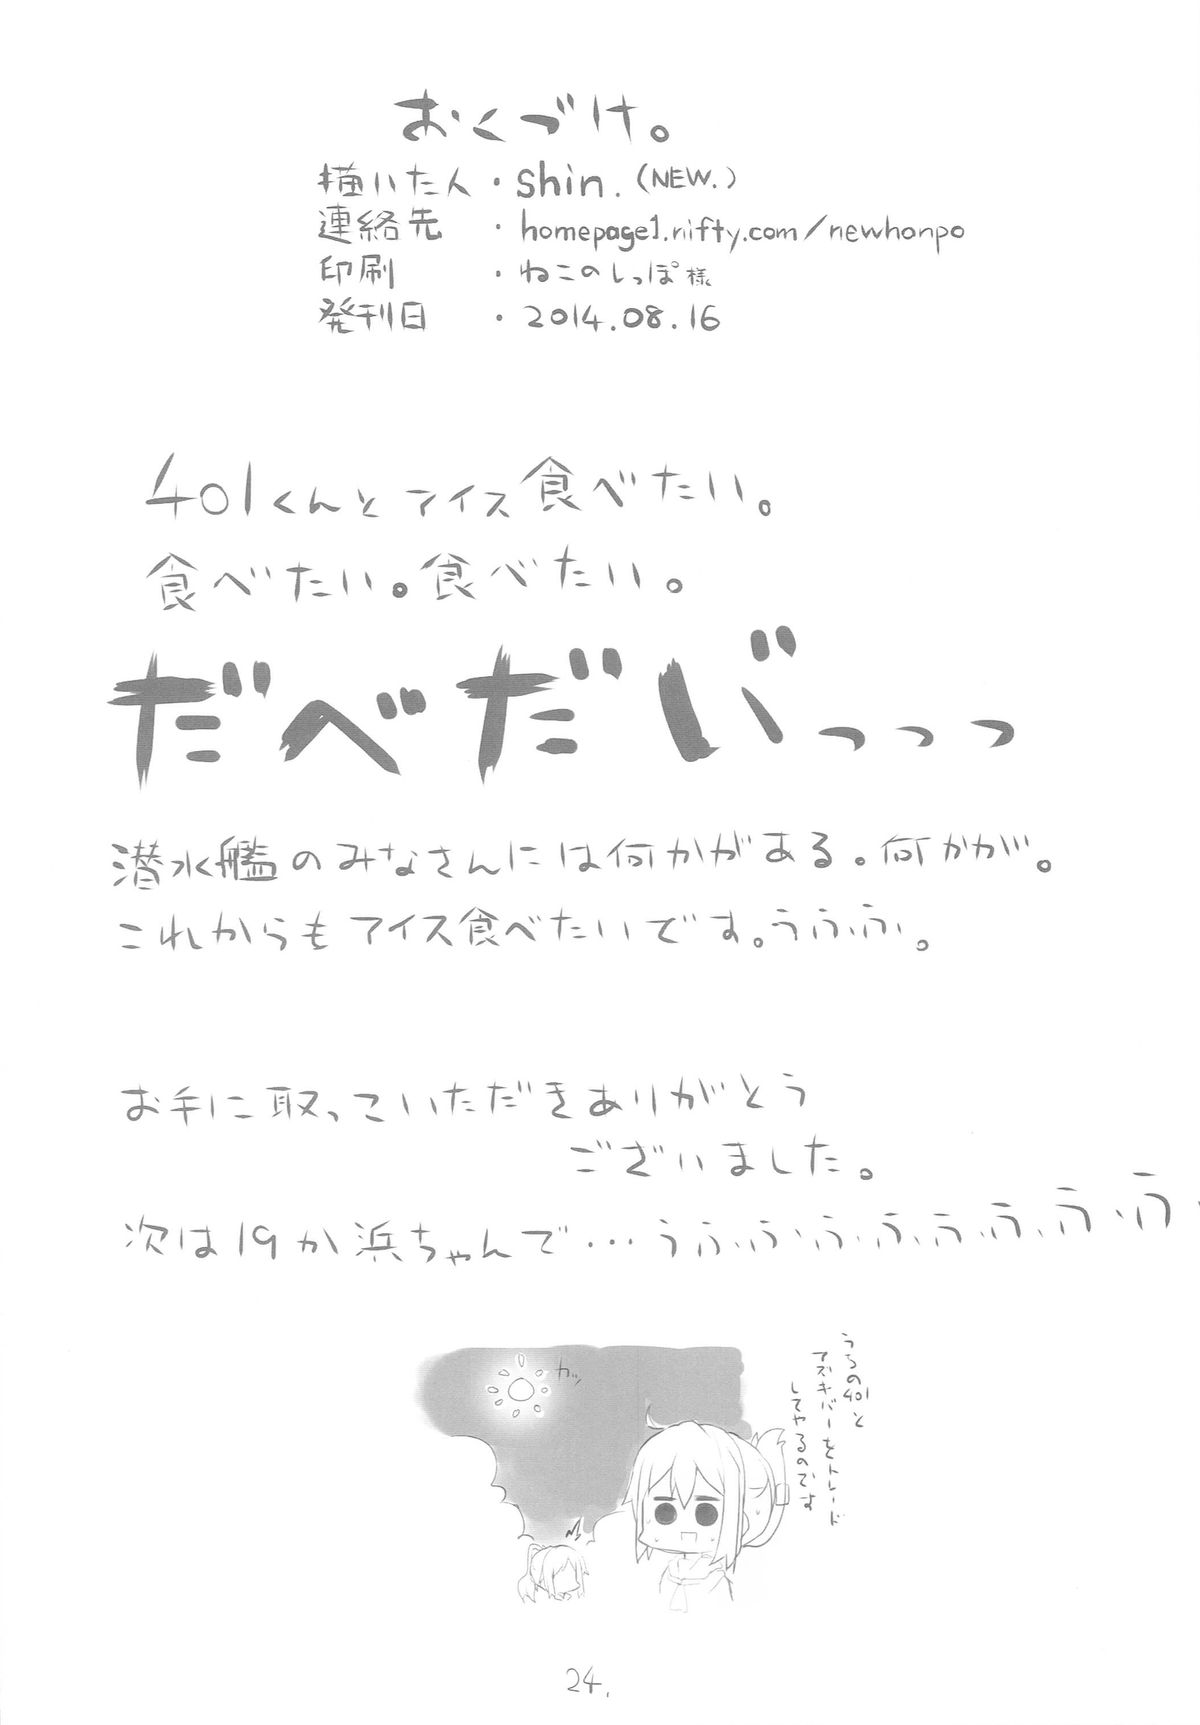 おくづけ。
描いた人・shin.(NEW.)
連絡先・homepage1.nifty.com/newhonpo
印刷・ねこのしっぽ様
発刊日・2014.08.16
401くんとアイス食べたい。
食べたい。食べたい。
だべだい゛っっっ
潜水艦のみなさんには何かがある。何かが。
これからもアイス食べたいです。うふふ。
お手に取っていただきありがとう
ございました。
次は19か浜ちゃんで…うふふふふふふふふ
カッ
うちの401と
アズキバーをトレード
してやるのです
24.